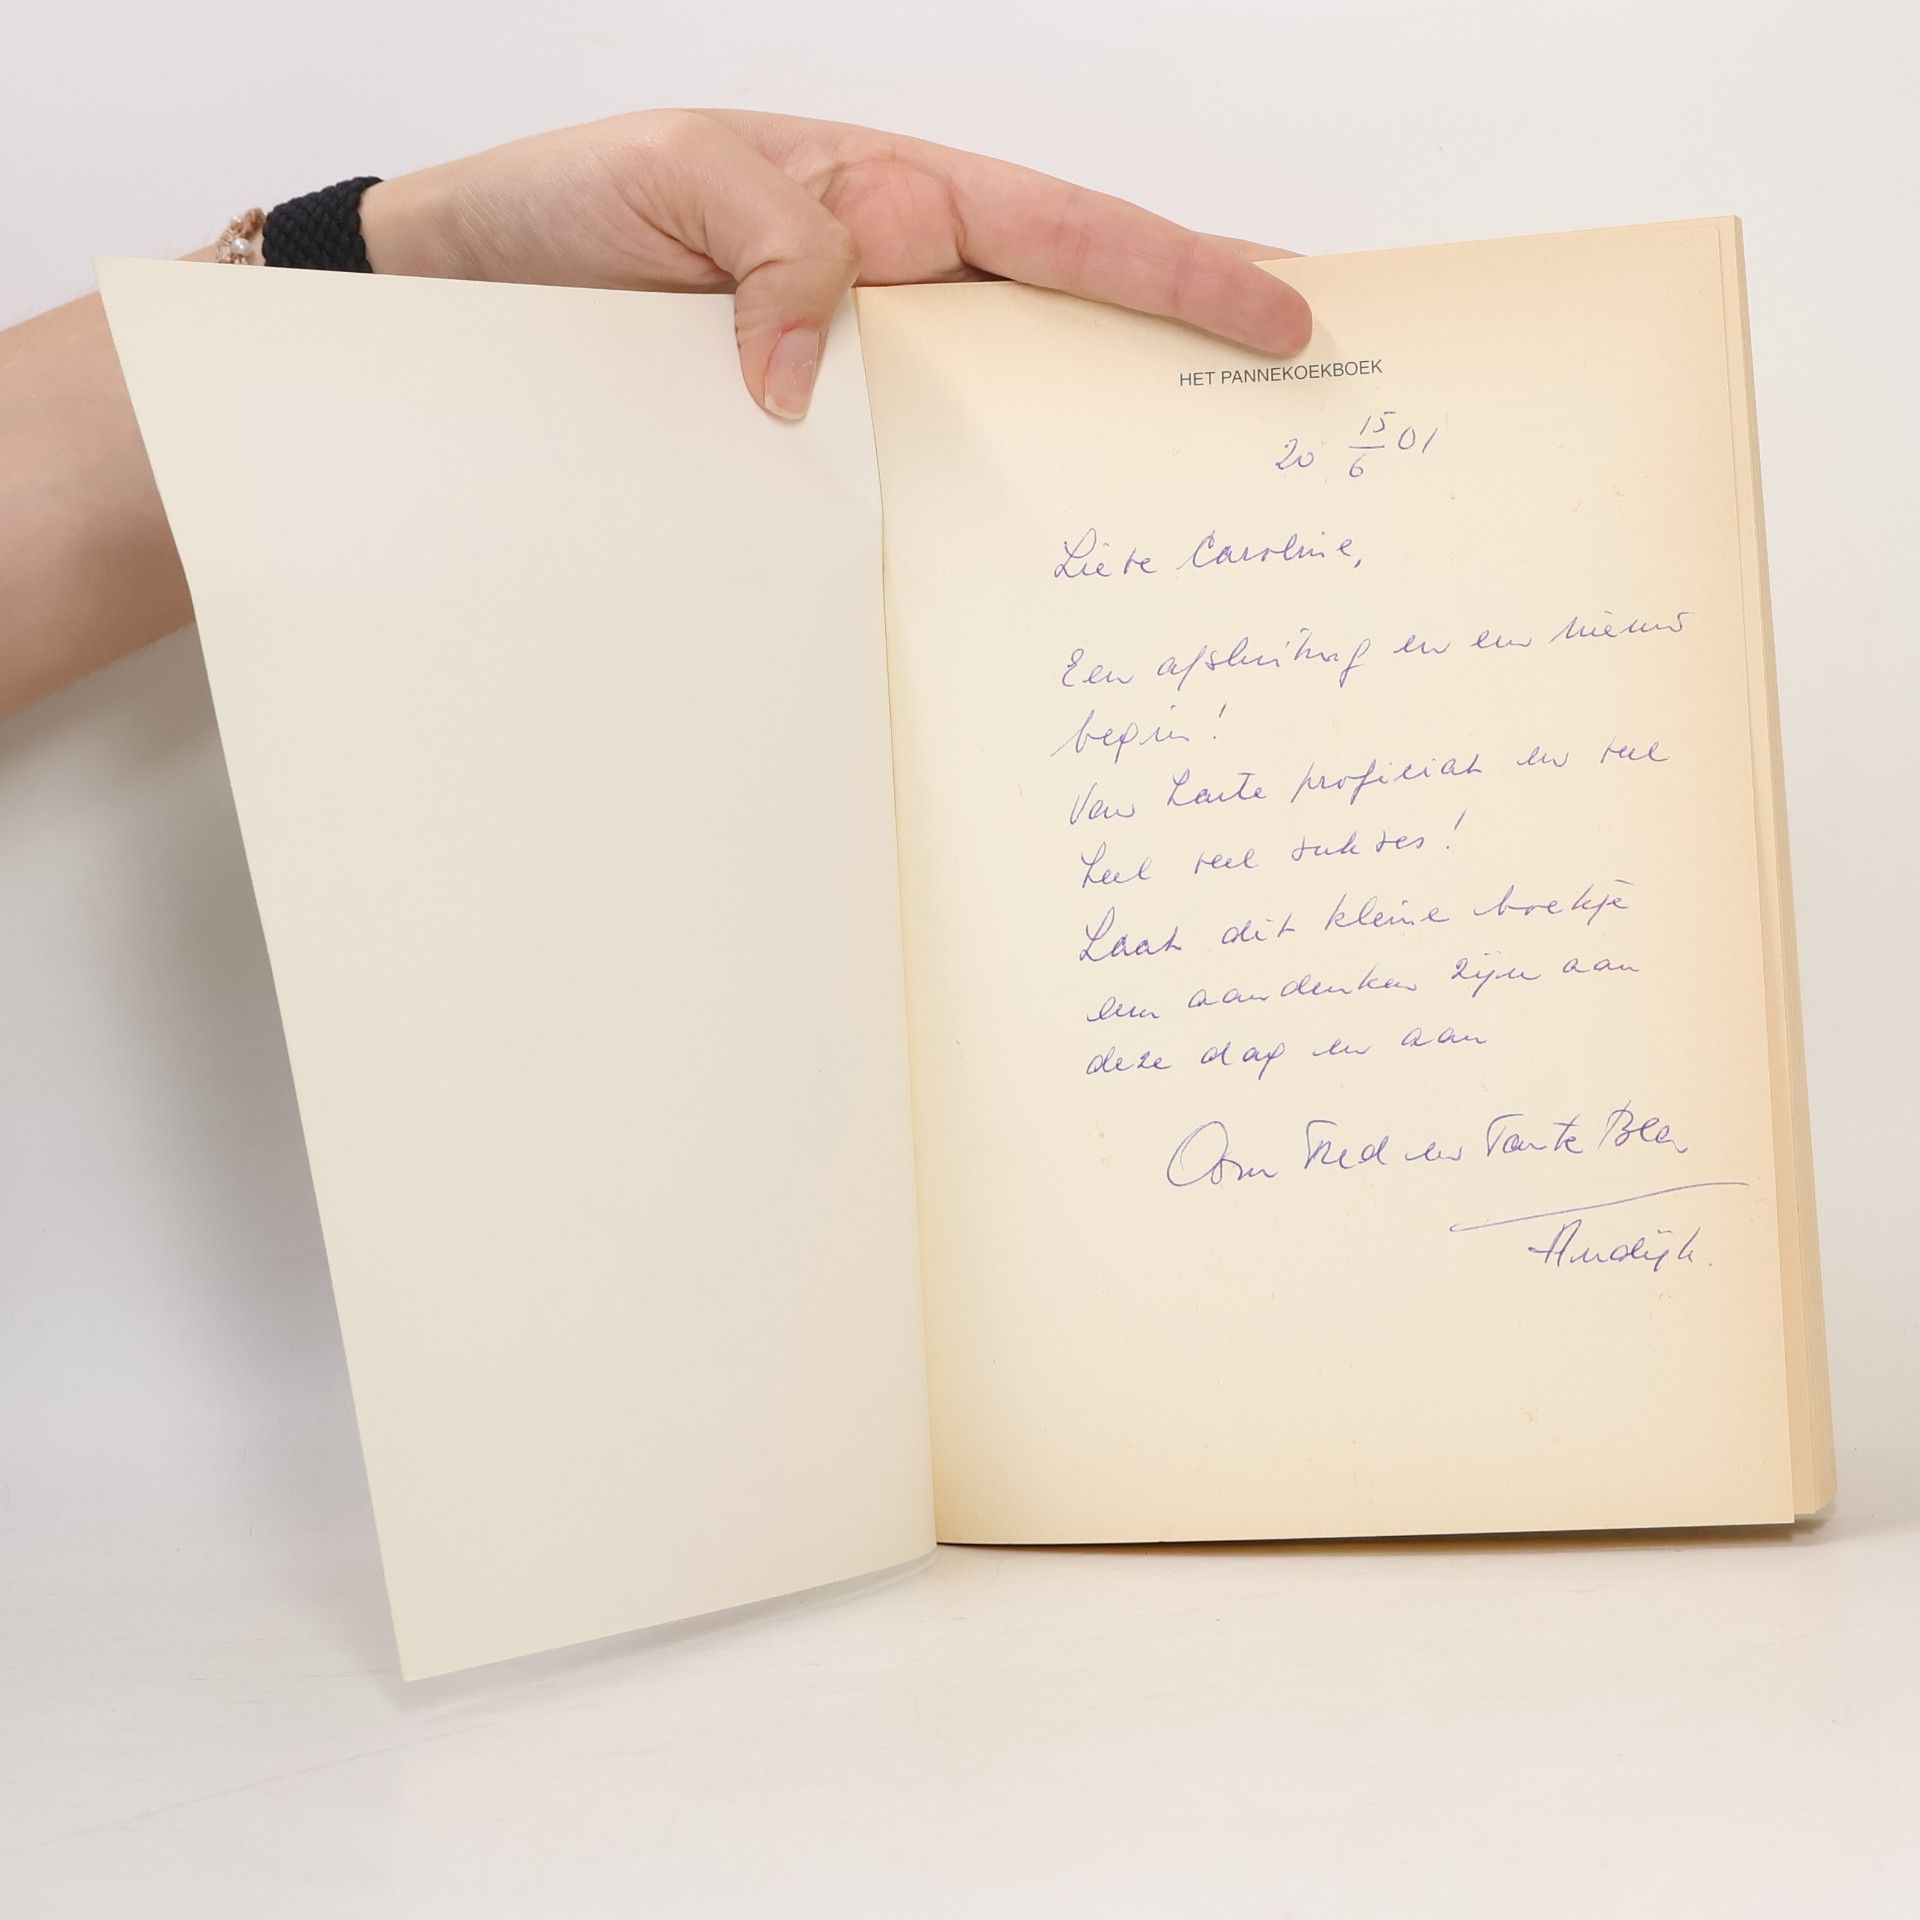 HET PANNEKOEKBOEK
20 15/6 01
Lieve Caroline,
Een afsluiting en een nieuw
begin!
Van harte proficiat en veel
heel veel sukses!
Laat dit kleine boekje
een aandenken zijn aan
deze dag en aan
Oom Fred en Tante Bea
Andijk.